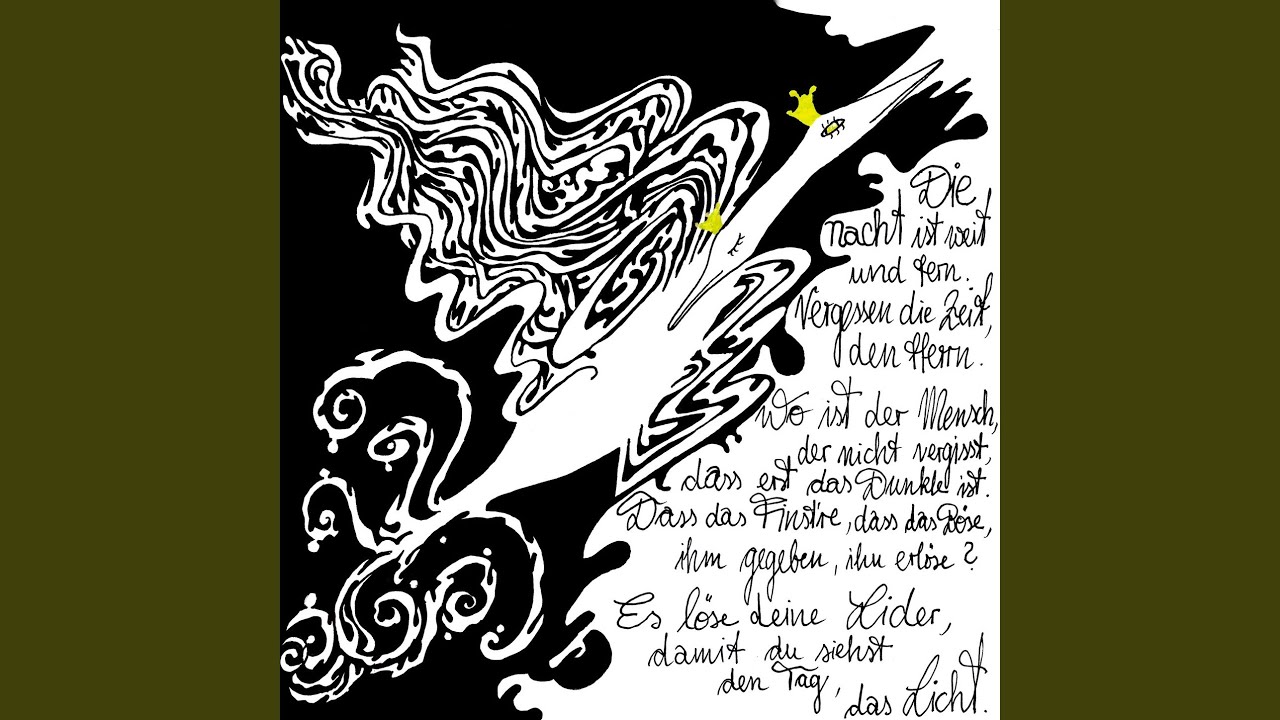 Die
nacht ist weit
und fern.
Vergessen die Zeit,
den Herrn.
Wo ist der Mensch,
der nicht vergisst,
dass erst das Dunkle ist.
Dass das Finst're, dass das Böse,
ihm gegeben, ihn erlöse?
Es löse deine Lider,
damit du siehst
den Tag,
das Licht.